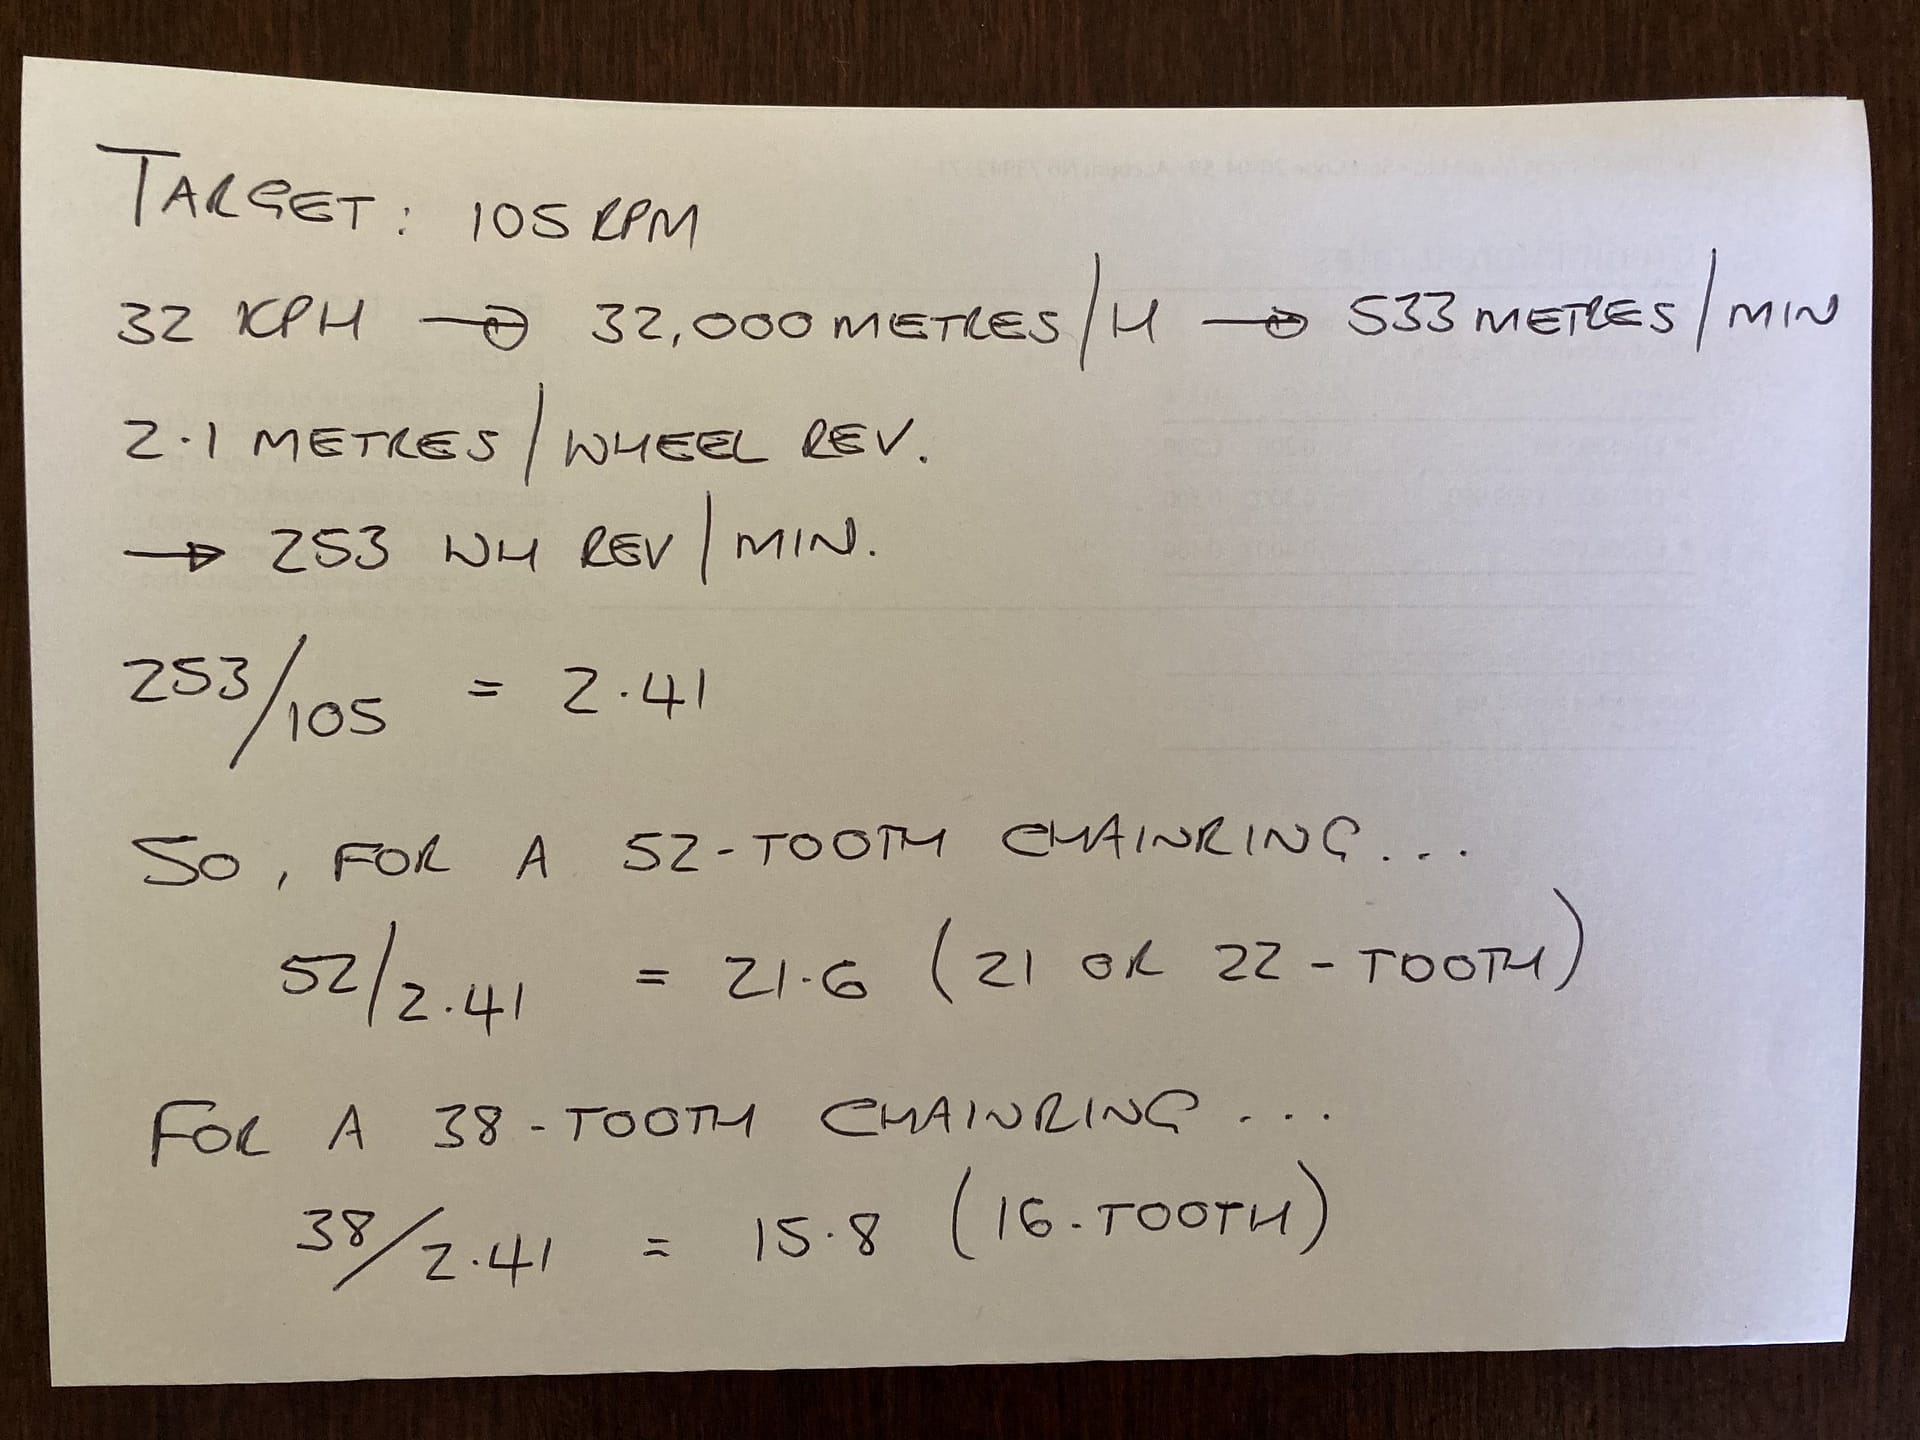 TARGET: 105 RPM
32 KPH → 32,000 METRES/H → 533 METRES/MIN
2.1 METRES/WHEEL REV.
→ 253 WH REV/MIN.
253/105 = 2.41
SO, FOR A 52-TOOTH CHAINRING...
52/2.41 = 21.6 (21 OR 22-TOOTH)
FOR A 38-TOOTH CHAINRING...
38/2.41 = 15.8 (16-TOOTH)